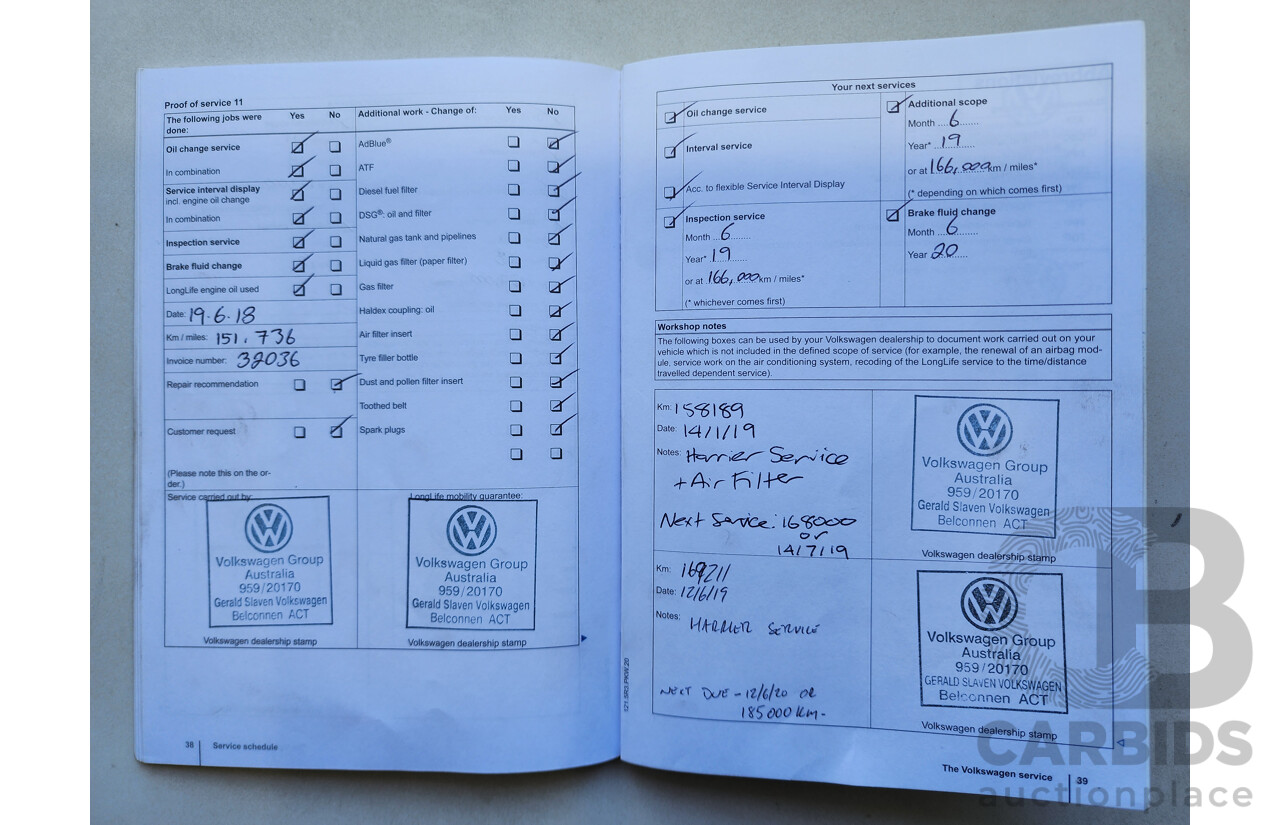 Proof of service 11
The following jobs were done: Yes No
Oil change service
In combination
Service interval display
incl. engine oil change
In combination
Inspection service
Brake fluid change
LongLife engine oil used
Date: 19.6.18
Km / miles: 151,736
Invoice number: 32036
Repair recommendation
Customer request
(Please note this on the or-
der.)
Additional work - Change of: Yes No
AdBlue®
ATF
Diesel fuel filter
DSG®: oil and filter
Natural gas tank and pipelines
Liquid gas filter (paper filter)
Gas filter
Haldex coupling: oil
Air filter insert
Tyre filler bottle
Dust and pollen filter insert
Toothed belt
Spark plugs
Service carried out by:
Volkswagen Group
Australia
959/20170
Gerald Slaven Volkswagen
Belconnen ACT
Volkswagen dealership stamp
LongLife mobility guarantee:
Volkswagen Group
Australia
959/20170
Gerald Slaven Volkswagen
Belconnen ACT
Volkswagen dealership stamp
38 Service schedule
121.5R3.PKW.20
Your next services
Oil change service
Interval service
Acc. to flexible Service Interval Display
Inspection service
Month ...6........
Year* 19
or at 166,000 km / miles*
(* whichever comes first)
Additional scope
Month ....6.......
Year* 19
or at 166,000 km / miles*
(* depending on which comes first)
Brake fluid change
Month ...6.......
Year 20
Workshop notes
The following boxes can be used by your Volkswagen dealership to document work carried out on your
vehicle which is not included in the defined scope of service (for example, the renewal of an airbag mod-
ule, service work on the air conditioning system, recoding of the LongLife service to the time/distance
travelled dependent service).
Km: 158189
Date: 14/1/19
Notes: Harrier Service
+ Air Filter
Next Service: 168000
or
14/7/19
Volkswagen Group
Australia
959/20170
Gerald Slaven Volkswagen
Belconnen ACT
Volkswagen dealership stamp
Km: 169211
Date: 12/6/19
Notes: HARRIER SERVICE
NEXT DUE - 12/6/20 OR
185000 Km-
Volkswagen Group
Australia
959/20170
GERALD SLAVEN VOLKSWAGEN
Belconnen ACT
Volkswagen dealership stamp
The Volkswagen service 39
CARBIDS
auctionplace